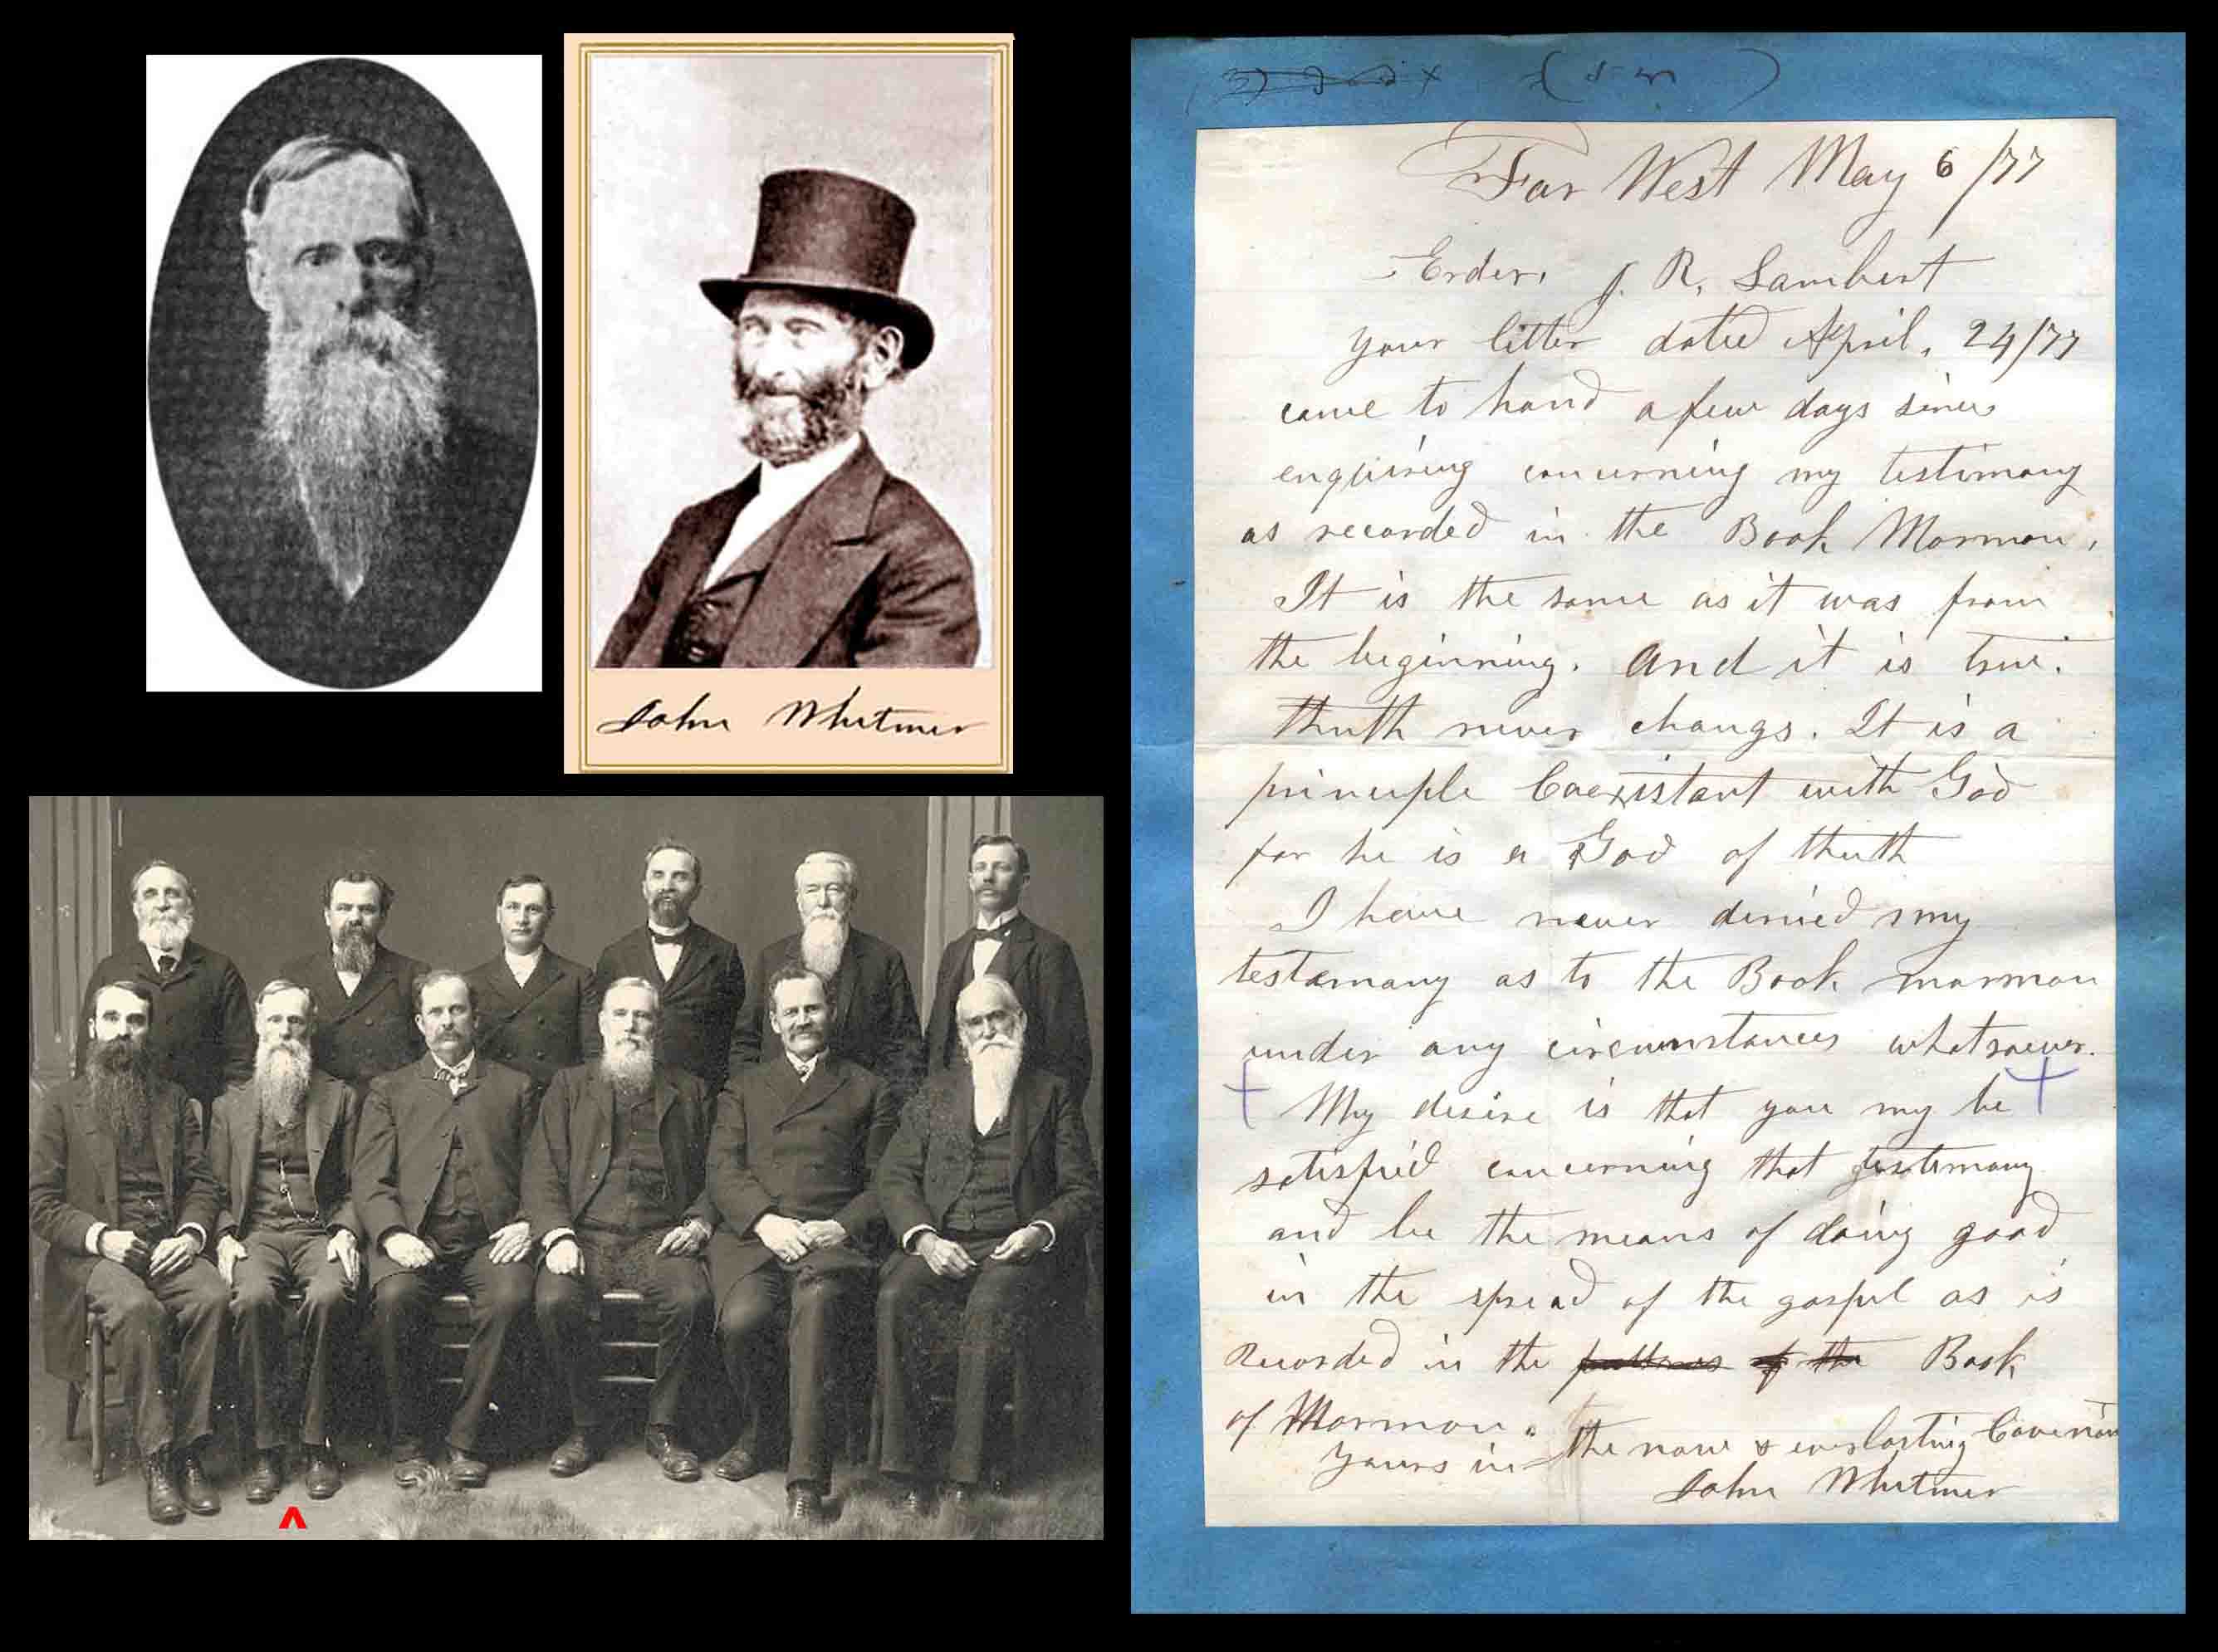 John Whitmer
Far West May 6/77
Erder. J. R. Lambert
your litter dated April. 24/77
came to hand a few days since
enquiring concerning my testimony
as recorded in the Book Mormon.
It is the same as it was from
the beginning. And it is true.
thuth never changs. It is a
principle Coexistant with God
for he is a God of thuth
I have never denied my
testamony as to the Book mormon
under any circumstances whatsoever.
My desire is that you my be
satisfied concerning that testimony
and be the means of doing good
in the spread of the gospel as is
Recorded in the of the Book
of Mormon.
yours in the new & everlasting Covenan
John Whitmer